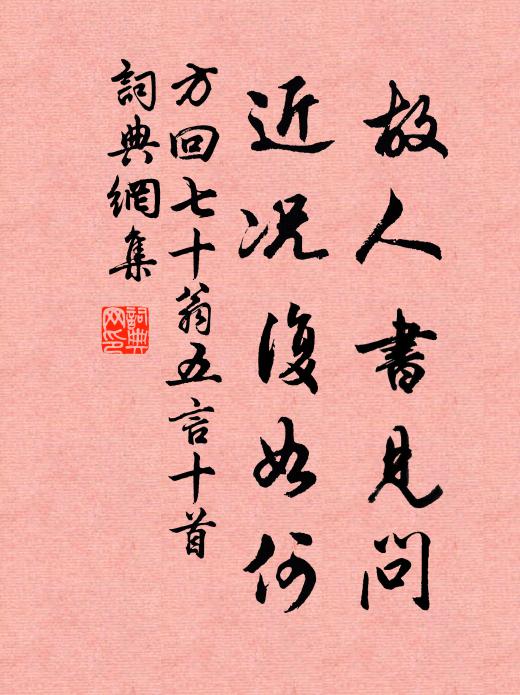 故人書見問
近况復如何
方回七十翁五言十首
詞典網集
詞典网印